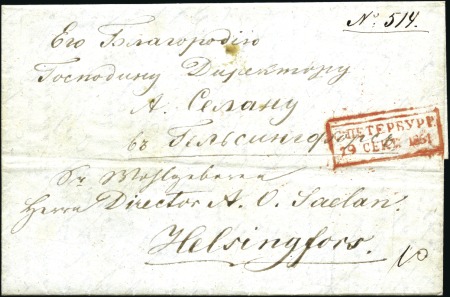 № 514.
Его Благородію
Господину Директору
А. Селану
въ Гельсингфорсѣ
С.ПЕТЕРБУРГ
19 СЕНТ. 1851
Sr Wohlgeboren
Herrn Director A. O. Saelan.
Helsingfors.